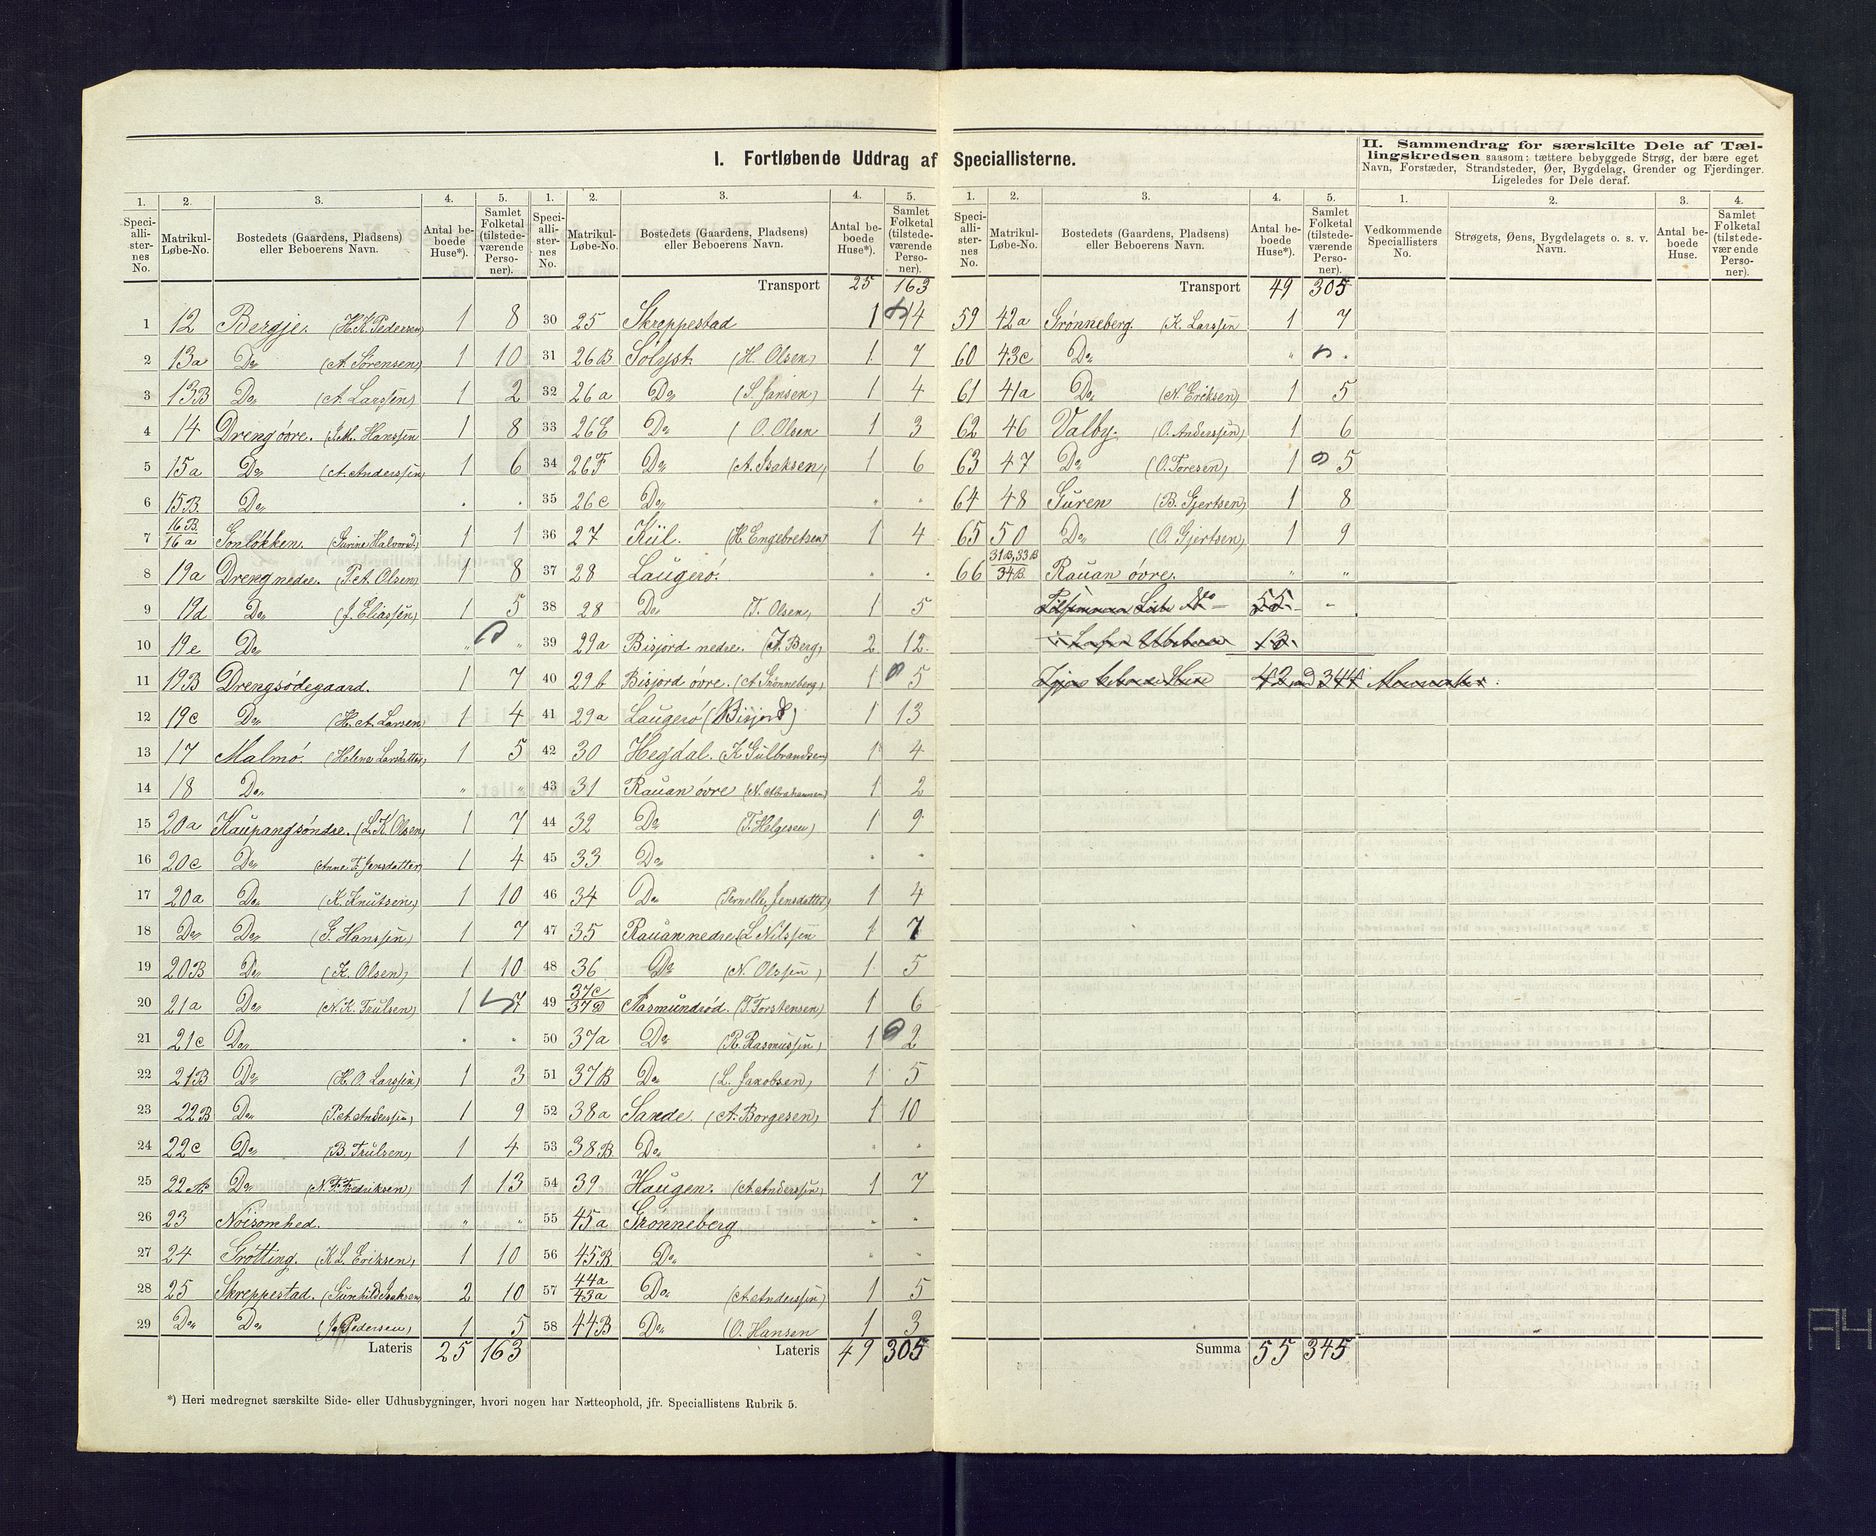 I. Fortløbende Uddrag af Speciallisterne.
II. Sammendrag for særskilte Dele af Tællingskredsen saasom: tættere bebyggede Strøg, der bære eget
Navn, Forstæder, Strandsteder, Øer, Bygdelag, Grender og Fjerdinger.
Ligeledes for Dele deraf.
1. 2. 3. 4. 5.
Speciallisternes No. Matrikul-Løbe-No. Bostedets (Gaardens, Pladsens) eller Beboerens Navn. Antal beboede Huse*). Samlet Folketal (tilstedeværende Personer).
1 12 Bergje. (H. K. Pedersen) 1 8
2 13a Do (A. Sørensen) 1 10
3 13B Do (A. Larssen) 1 2
4 14 Dreng øvre. (J. M. Hanssen 1 8
5 15a Do (A. Anderssen) 1 6
6 15B. Do . .
7 16B/16a Sonløkken. (Karine Halvorsd.) 1 1
8 19a Dreng nedre. (Pet. Olsen) 1 8
9 19d Do (J. Eliassen) 1 5
10 19e Do " "
11 19B Drengsødegaard. 1 7
12 19c Do (H. A. Larsen) 1 4
13 17 Malmø. (Helene Larsdatter) 1 5
14 18 Do " "
15 20a Kaupang søndre. (L. K. Olsen) 1 7
16 20c Do (Anne T. Jensdatter) 1 4
17 20a Do (K. Knutsen) 1 10
18 Do Do (G. Hanssen) 1 7
19 20B Do (K. Olsen) 1 10
20 21a Do (N. K. Trulsen) 1 7
21 21c Do . .
22 21B Do (H. O. Larssen) 1 3
23 22B Do (P. A. Anderssen) 1 9
24 22c Do (B. Trulsen) 1 4
25 22A Do (N. F. Fredriksen) 1 13
26 23 Noisomhed. " "
27 24 Grøtting. (K. L. Eriksen) 1 10
28 25 Skreppestad. (Gunhild Isaksen) 2 10
29 Do Do (J. Pedersen) 1 5
Lateris 25 163
1. 2. 3. 4. 5.
Speciallisternes No. Matrikul-Løbe-No. Bostedets (Gaardens, Pladsens) eller Beboerens Navn. Antal beboede Huse*). Samlet Folketal (tilstedeværende Personer).
Transport 25 163
30 25 Skreppestad 1 14
31 26B Solyst. (H. Olsen) 1 7
32 26a Do (S. Jansen) 1 4
33 26E Do (O. Olsen 1 3
34 26F Do (A. Isaksen) 1 6
35 26c Do " .
36 27 Kiil. (H. Engebretsen 1 4
37 28 Laugerø. " .
38 28 Do (T. Olsen) 1 5
39 29a Bisjord nedre. (J. Berg) 2 12.
40 29b Bisjord øvre. (A. Grønneberg) 1 5
41 29a Laugerø (Bisjord) 1 13
42 30 Hegdal. (K. Gulbrandsen) 1 4
43 31 Rauan øvre (N. Abrahamsen) 1 2
44 32 Do (T. Helgesen) 1 9
45 33 Do . .
46 34 Do (Pernelle Jensdatter) 1 4
47 35 Rauan nedre. (L. Nilssen 1 7
48 36 Do (N. Olssen) 1 5
49 37c/37D Aasmundrød. (T. Torstensen) 1 6
50 37a Do (R. Rasmussen) 1 2
51 37B Do (L. Jakobsen) 1 5
52 38a Sande. (A. Borgesen) 1 10
53 38B Do . .
54 39 Haugen. (A. Anderssen) 1 7
55 45a Grønneberg . .
56 45B. Do . .
57 44a/43a Do (A. Anderssen) 1 5
58 44B Do (O. Hansen 1 3
Lateris 49 305
1. 2. 3. 4. 5.
Speciallisternes No. Matrikul-Løbe-No. Bostedets (Gaardens, Pladsens) eller Beboerens Navn. Antal beboede Huse*). Samlet Folketal (tilstedeværende Personer).
Transport 49 305
59 42a Grønneberg. (K. Larssen 1 7
60 43c Do " .
61 41a Do (N. Eriksen) 1 5
62 46 Valby. (O. Anderssen) 1 6
63 47 Do (O. Toresen) 1 5
64 48 Guren (B. Gjertsen) 1 8
65 50 Do (O. Gjertsen) 1 9
66 31B, 33B/34B. Rauan øvre. " "
55 -
13.
42 344
Summa 55 345
1. 2. 3. 4.
Vedkommende Speciallisters No. Strøgets, Øens, Bygdelagets o. s. v. Navn. Antal beboede Huse. Samlet Folketal (tilstedeværende Personer).
*) Heri medregnet særskilte Side- eller Udhusbygninger, hvori nogen har Natteophold, jfr. Speciallistens Rubrik 5.